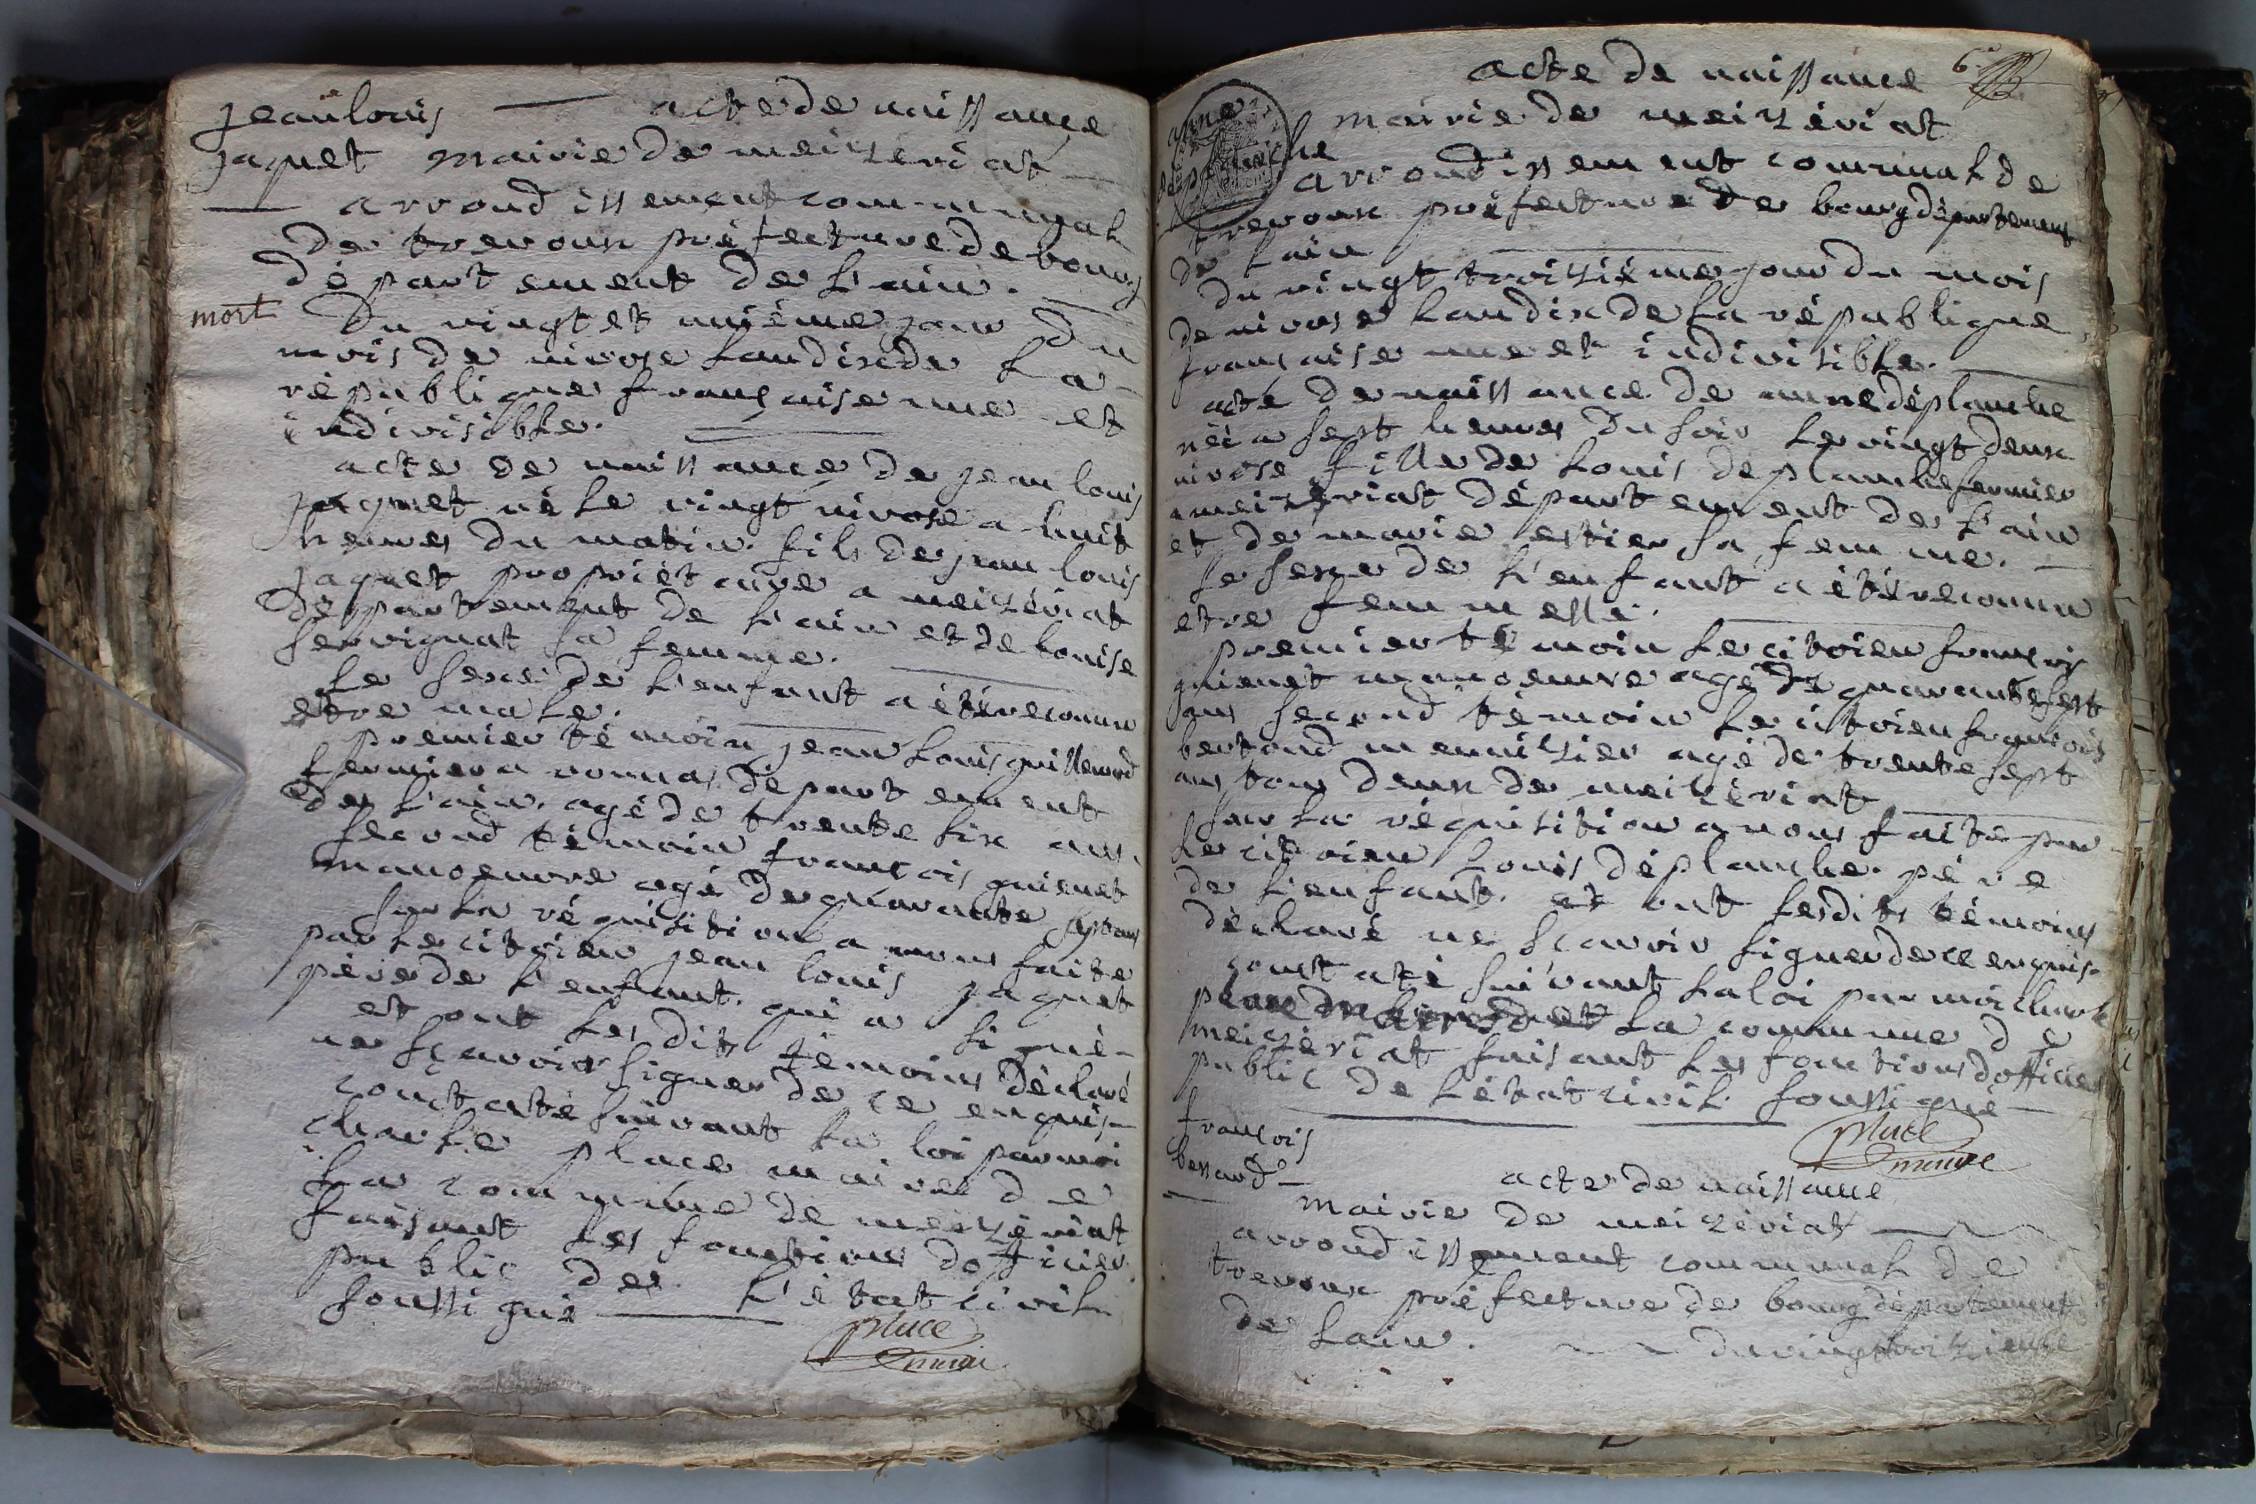 jean louis — acte de naissance
jaquet mairie de meizériat —
— arrondissement communal
de trevoux préfecture de bourg
département de l'ain. —
mort Du vingt et uniéme jour Du
mois de nivose l'an dix de la
république française une et
indivisible.
acte de naissance de jean louis
jaquet né le vingt nivose a huit
heures du matin. fils de jean louis
jaquet propriétaire a meizériat
département de l'ain et de louise
servignat sa femme. —
le sexe de l'enfant a été reconnu
etre male. —
premier témoin jean louis guillemod
fermier a vonnas, département
de l'ain. agé de trente six ans.
second témoin françois guienet
manoeuvre agé de quarante sept ans
sur la réquisition a nous faite
par le citoien jean louis jaquet
pére de l'enfant. qui a signé —
et ont les dits témoins déclaré
ne sçavoir signer de ce enquis —
constaté suivant la loi par moi
charle place maire de
la commune de meizériat
faisant les fonctions d'officier
public de l'état civil
soussigné —
place
maire
6e
acte de naissance
anne mairie de meizériat
déplanche
arrondissement communal de
trevoux préfecture de bourg département
de l'ain —
du vingt troiziéme jour du mois
de nivose l'an dix de la république
française une et indivisible. —
acte de naissance de anne déplanche
néé a sept heures du soir le vingt deux
nivose fille de louis déplanche fermier
a meizériat département de l'ain
et de marie estier sa femme. —
le sexe de l'enfant a été reconnu
etre femmelle. —
premier témoin le citoien françois
guienet manoeuvre agé de quarante sept
ans second témoin le citoien françois
bertoud menuizier agé de trente sept
ans tous deux de meizériat —
sur la réquisition a nous faite par
le citoien louis déplanche. pére
de l'enfant. et ont lesdits témoins
déclaré ne sçavoir signer de ce enquis.
constaté suivant la loi par moi charle
place la commune de
meizériat faisant les fonctions d'officier
public de l'état civil soussigné —
place
maire
françois
bessard —
acte de naissance
mairie de meizériat —
arrondissement communal de
trevoux préfecture de bourg département
de l'ain. du vingt troizieme